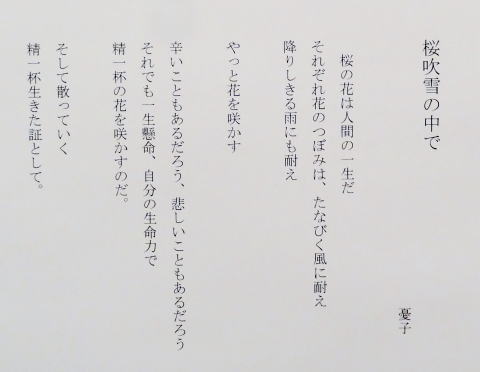 桜吹雪の中で
憂子
桜の花は人間の一生だ
それぞれ花のつぼみは、たなびく風に耐え
降りしきる雨にも耐え
やっと花を咲かす
辛いこともあるだろう、悲しいこともあるだろう
それでも一生懸命、自分の生命力で
精一杯の花を咲かすのだ。
そして散っていく
精一杯生きた証として。